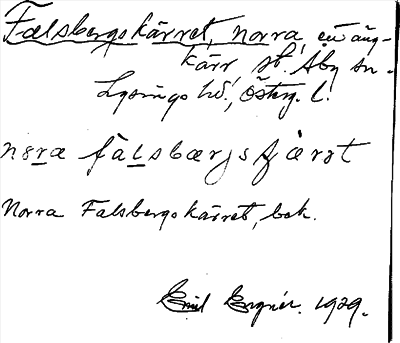 Falsbergskärret, norra, en äng-
kärr, st. Åby sn.
Lysings hd., Österg. l.
nora falsbærjsfjæret
Norra Falsbergskärret, bok.
Emil Ergnér. 1929.